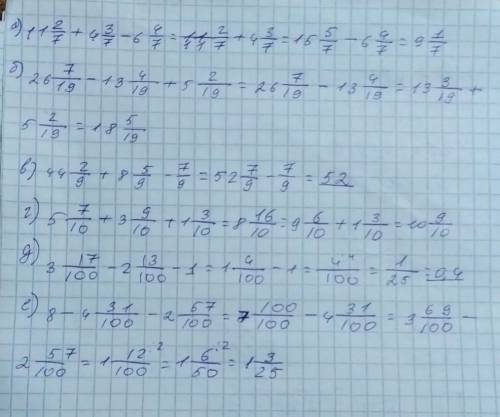 а) 11 2/7 + 4 3/7 - 6 4/7 = 11 2/7 + 4 3/7 = 15 5/7 - 6 4/7 = 9 1/7
б) 26 7/19 - 13 4/19 + 5 2/19 = 26 7/19 - 13 4/19 = 13 3/19 +
5 2/19 = 18 5/19
в) 44 2/9 + 8 5/9 - 7/9 = 52 7/9 - 7/9 = 52
г) 5 7/10 + 3 9/10 + 1 3/10 = 8 16/10 = 9 6/10 + 1 3/10 = 10 9/10
д) 3 17/100 - 2 13/100 - 1 = 1 4/100 - 1 = 4/100 = 1/25 = 0,4
е) 8 - 4 31/100 - 2 57/100 = 7 100/100 - 4 31/100 = 3 69/100 -
2 57/100 = 1 12/100 = 1 6/50 = 1 3/25